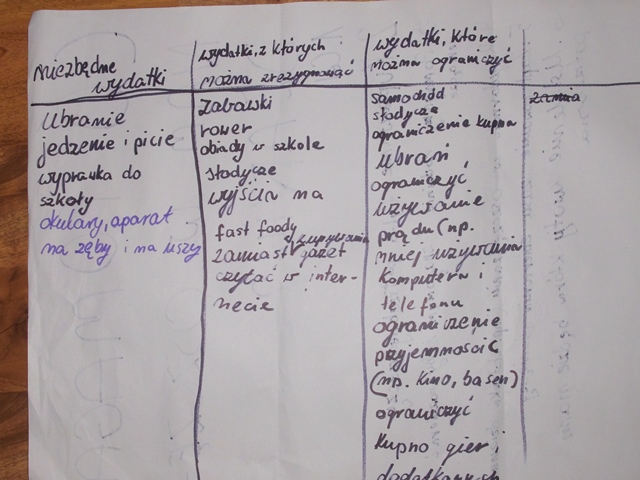 niezbędne
wydatki
ubranie
jedzenie i picie
wyprawka do
szkoły
okulary, aparat
na zęby i na uszy
wydatki, z których
można zrezygnować
zabawki
rower
obiady w szkole
słodycze
wyjścia na
fast foody
zamiast kupywania gazet
czytać w inter-
necie
wydatki, które
można ograniczyć
samochód
słodycze
ograniczenie kupna
ubrań
ograniczyć
używanie
prądu (np.
mniej używania
komputera i
telefonu
ograniczenie
przyjemności
(np. kino, basen)
ograniczyć
kupno gier i
dodatkowych